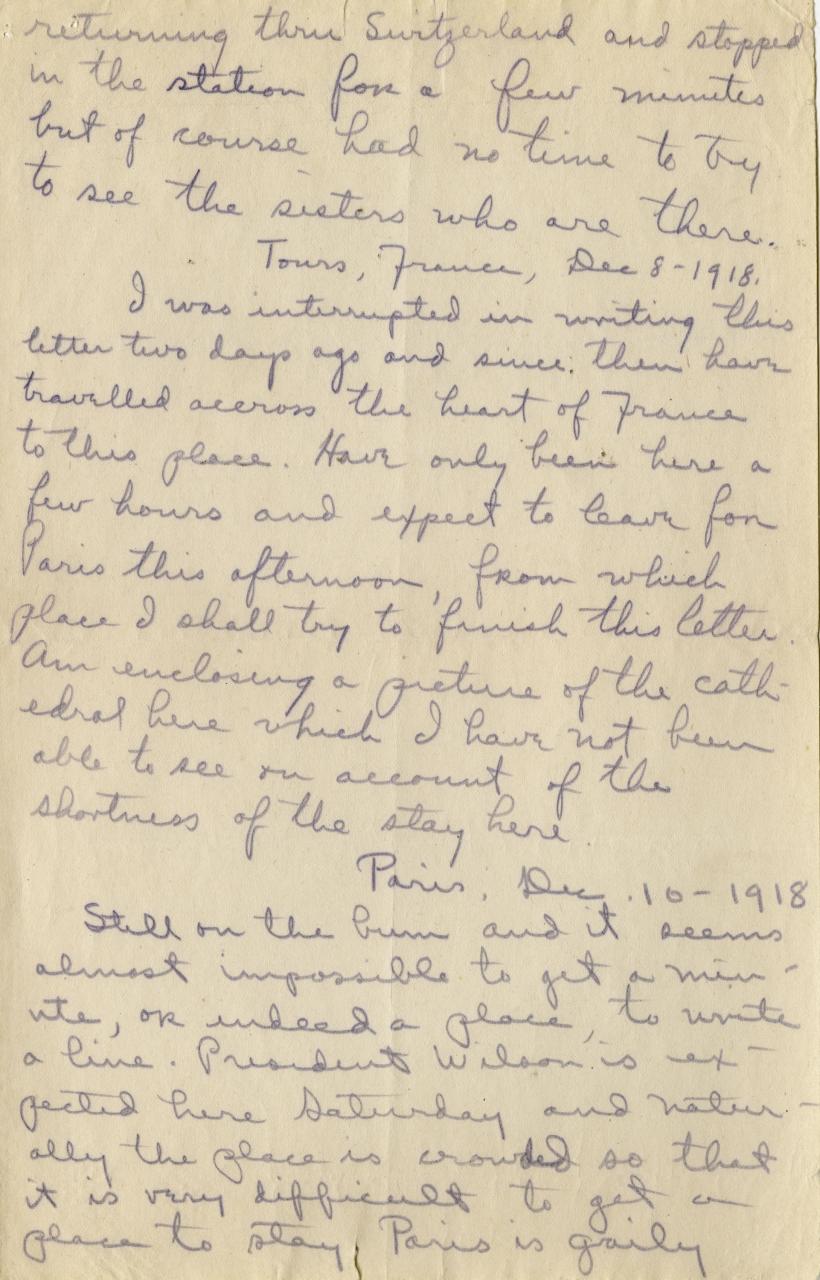 returning thru Switzerland and stopped
in the station for a few minutes
but of course had no time to try
to see the sisters who are there.
Tours, France, Dec 8-1918.
I was interrupted in writing this
letter two days ago and since then have
travelled accross the heart of France
to this place. Have only been here a
few hours and expect to leave for
Paris this afternoon, from which
place I shall try to finish this letter.
Am enclosing a picture of the cath-
edral here which I have not been
able to see on account of the
shortness of the stay here.
Paris, Dec. 10-1918
Still on the bum and it seems
almost impossible to get a min-
ute, or indeed a place, to write
a line. President Wilson is ex-
pected here Saturday and natur-
ally the place is crowded so that
it is very difficult to get a
place to stay. Paris is gaily